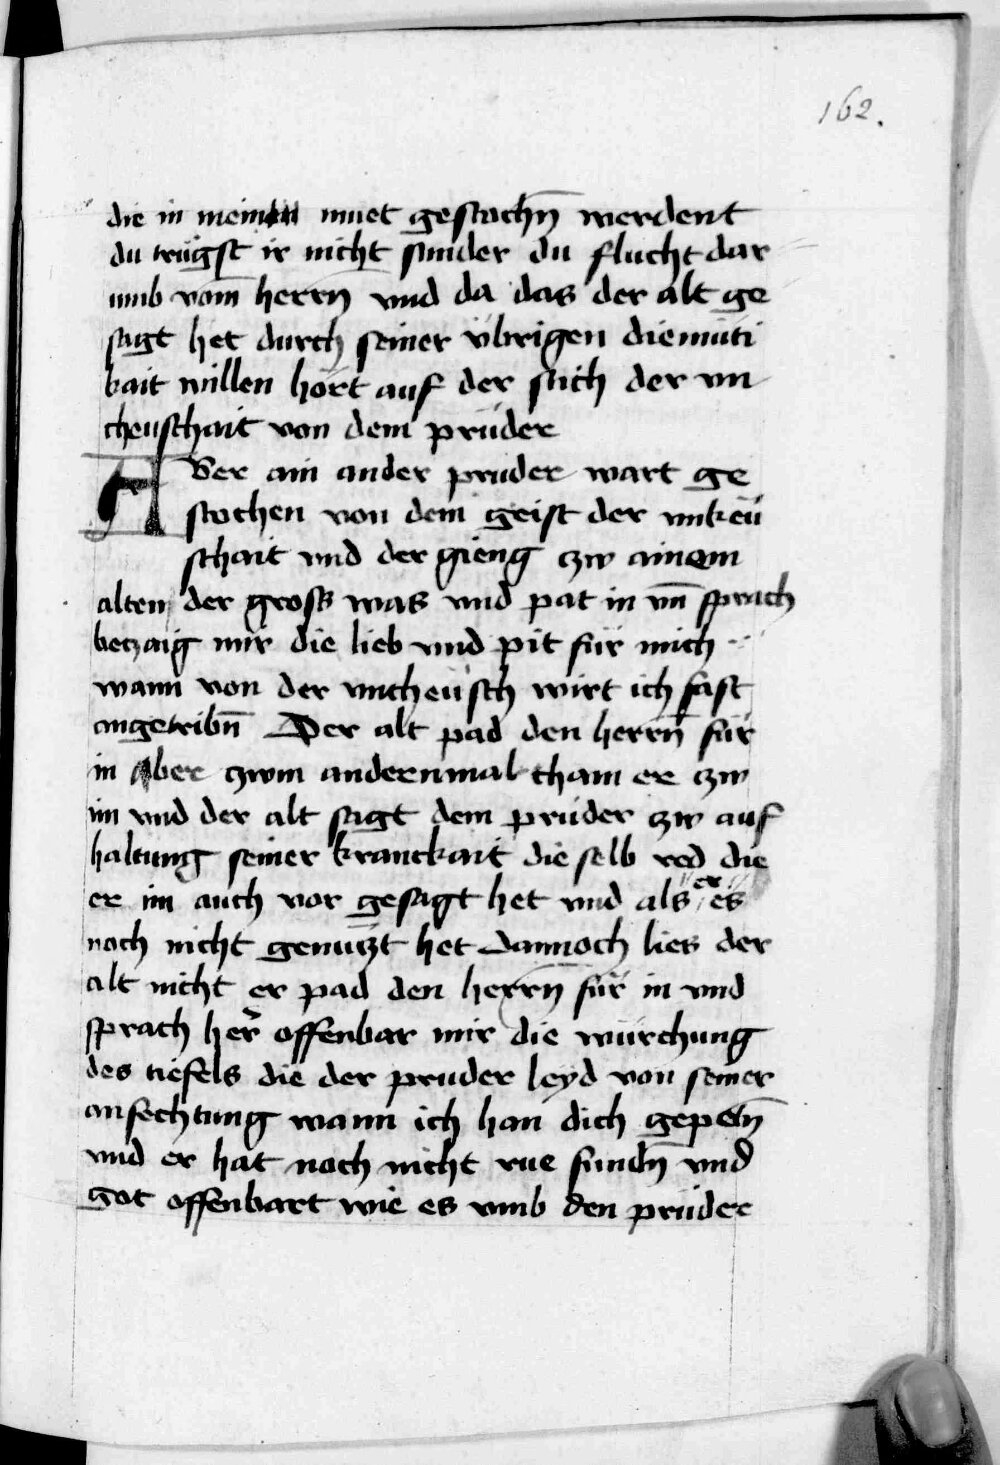 162.
die in meinem muet gestochn̄ werdent
du trügst ir nicht sunder du flucht dar
umb vom̄ herrn̄ vnd da das der alt ge
sagt het durch seiner übrigen diemüti
kait willen hört auf der stich der vn
cheuschait von dem prüder
Aber ain ander pruder wart ge
stochen von dem geist der unkeü
schait vnd der gieng zw ainem
alten der gross was vnd pat in vn̄ sprach
betzaig mir die lieb vnd pit für mich
wann von der vncheüsch wirt ich fast
angetribn̄ Der alt pad den herrn̄ für
in Aber zwm andernmal cham er zw
im vnd der alt sagt dem prüder zw auf
haltung seiner kranckait die selb red die
er im auch vor gesagt het vnd als er es
noch nicht genützt het Dannoch lies der
alt nicht er pad den herrn̄ für in vnd
sprach her̄ offenbar mir die würchung
des tiefels die der pruder leyd von seiner
anfechtung wann ich han dich gepetn̄
vnd er hat noch nicht rue fundn̄ vnd
got offenbart wie es vmb den prüder